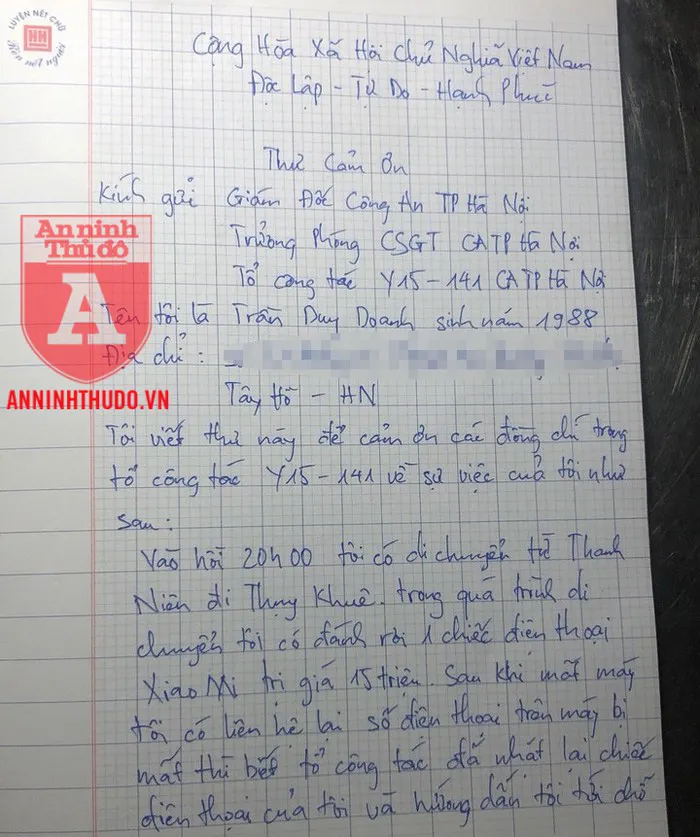 LUYỆN NÉT CHỮ
HH
Rèn nết người
Cộng Hòa Xã Hội Chủ Nghĩa Việt Nam
Độc Lập - Tự Do - Hạnh Phúc
Thư Cảm Ơn
Kính gửi Giám Đốc Công An TP Hà Nội
Trưởng Phòng CSGT CATP Hà Nội
Tổ công tác Y15-141 CATP Hà Nội
An ninh
Thủ đô
A
ANNINHTHUDO.VN
Tên tôi là Trần Duy Doanh sinh năm 1988
Địa chỉ :
Tây Hồ - HN
Tôi viết thư này để cảm ơn các đồng chí trong
tổ công tác Y15-141 về sự việc của tôi như
sau:
Vào hồi 20h00 tôi có di chuyển từ Thanh
Niên đi Thụy Khuê. trong quá trình di
chuyển tôi có đánh rơi 1 chiếc điện thoại
XiaoMi trị giá 15 triệu. Sau khi mất máy
tôi có liên hệ lại số điện thoại trên máy bị
mất thì biết tổ công tác đã nhặt lại chiếc
điện thoại của tôi và hướng dẫn tôi tới chỗ